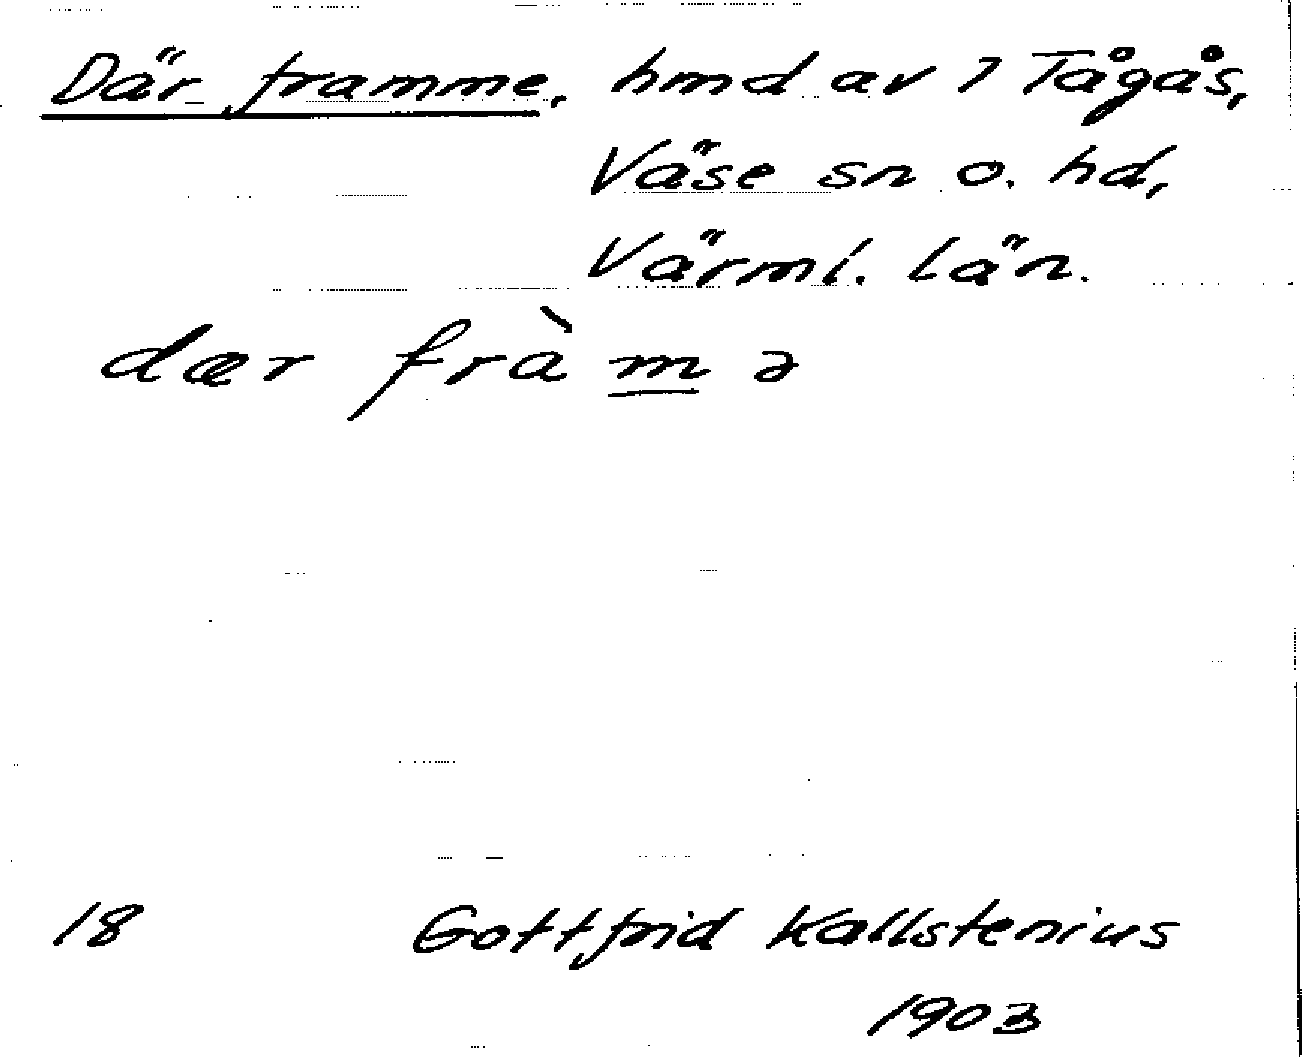 Där framme, hmd av 7 Tågås,
Väse sn o. hd,
Värml. län.
dær frà m̲ ə
18 Gottfrid Kallstenius
1903